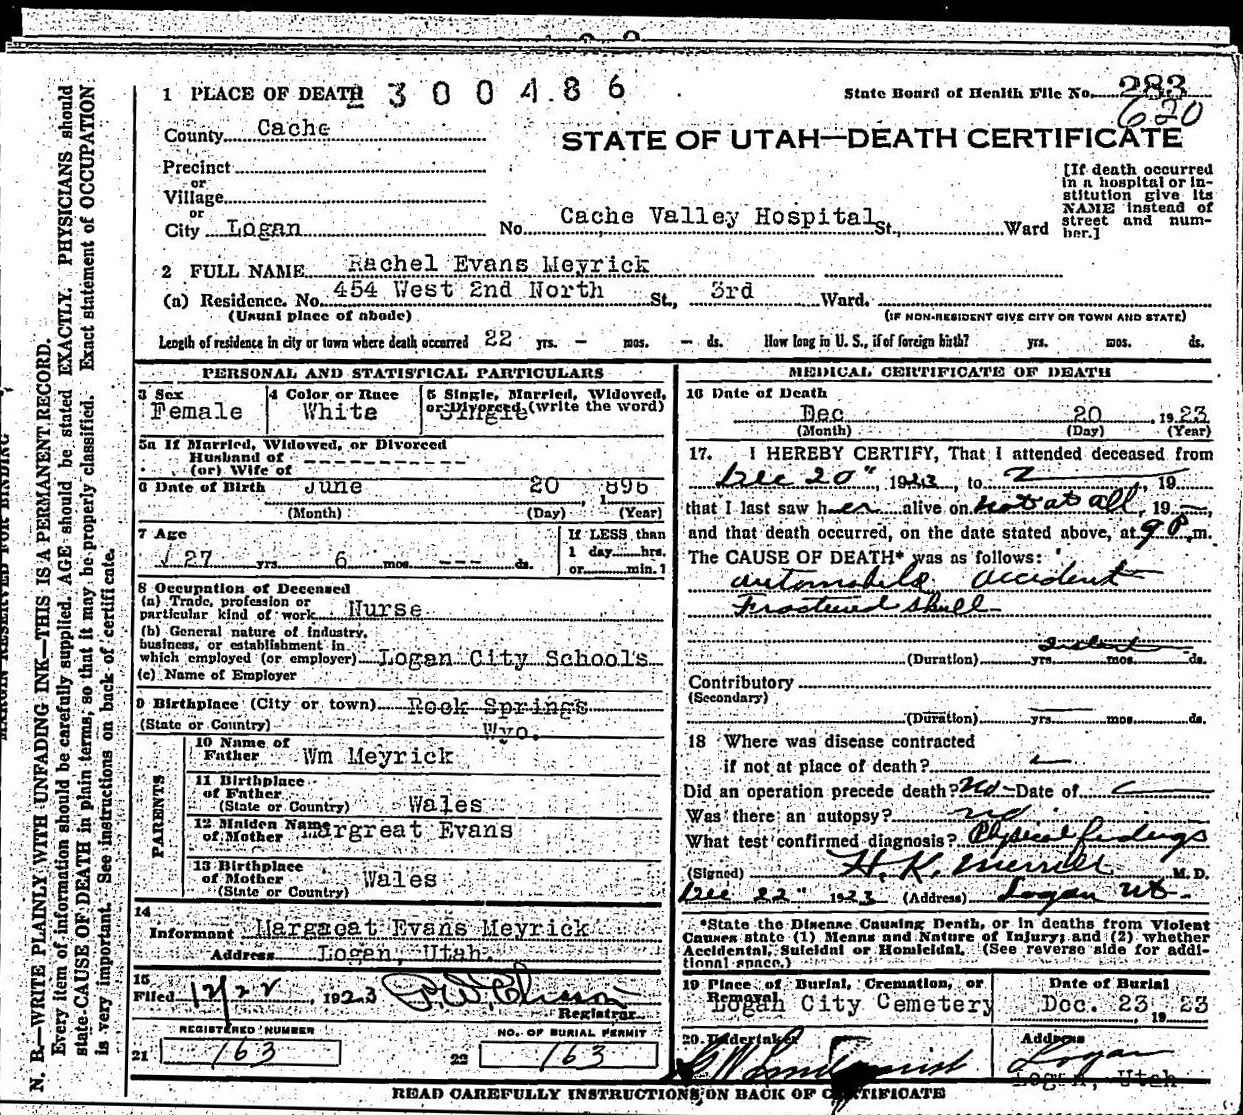 1 PLACE OF DEATH 2300486
State Board of Health File No. 283
620
County Cache
STATE OF UTAH—DEATH CERTIFICATE
Precinct
or
Village
or
City Logan No. Cache Valley Hospital St., Ward
[If death occurred
in a hospital or in-
stitution give its
NAME instead of
street and num-
ber.]
2 FULL NAME Rachel Evans Meyrick
(a) Residence. No. 454 West 2nd North St., 3rd Ward.
(Usual place of abode) (IF NON-RESIDENT GIVE CITY OR TOWN AND STATE)
Length of residence in city or town where death occurred 22 yrs. - mos. - ds. How long in U. S., if of foreign birth? yrs. mos. ds.
PERSONAL AND STATISTICAL PARTICULARS
3 Sex 4 Color or Race 5 Single, Married, Widowed,
or Divorced (write the word)
Female White Single
5a If Married, Widowed, or Divorced
Husband of
(or) Wife of
6 Date of Birth June 20, 1896
(Month) (Day) (Year)
7 Age If LESS than
1 day......hrs.
27 yrs. 6 mos. --- ds. or......min.?
8 Occupation of Deceased
(a) Trade, profession or
particular kind of work Nurse
(b) General nature of industry,
business, or establishment in
which employed (or employer) Logan City Schools
(c) Name of Employer
9 Birthplace (City or town) Rock Springs
(State or Country) Wyo.
PARENTS
10 Name of
Father Wm Meyrick
11 Birthplace
of Father
(State or Country) Wales
12 Maiden Name
of Mother Margreat Evans
13 Birthplace
of Mother
(State or Country) Wales
14
Informant Margreat Evans Meyrick
Address Logan, Utah.
15
Filed 12/22, 1923
Registrar
REGISTERED NUMBER NO. OF BURIAL PERMIT
21 163 22 163
MEDICAL CERTIFICATE OF DEATH
16 Date of Death
Dec 20, 1923
(Month) (Day) (Year)
17. I HEREBY CERTIFY, That I attended deceased from
Dec 20", 1923, to , 19
that I last saw her alive on not at all, 19 ,
and that death occurred, on the date stated above, at 9 P.m.
The CAUSE OF DEATH* was as follows:
Automobile accident
Fractured skull
Instant
(Duration) yrs. mos. ds.
Contributory
(Secondary)
(Duration) yrs. mos. ds.
18 Where was disease contracted
if not at place of death?
Did an operation precede death? No Date of
Was there an autopsy? no
What test confirmed diagnosis? Physical findings
(Signed) H. K. Merrill M. D.
Dec 22" 1923 (Address) Logan Ut.
*State the Disease Causing Death, or in deaths from Violent
Causes state (1) Means and Nature of Injury; and (2) whether
Accidental, Suicidal or Homicidal. (See reverse side for addi-
tional space.)
19 Place of Burial, Cremation, or
Removal
Date of Burial
Logan City Cemetery Dec. 23, 1923
20. Undertaker Address
G W Lindquist Logan
Logan, Utah
READ CAREFULLY INSTRUCTIONS ON BACK OF CERTIFICATE
MARGIN RESERVED FOR BINDING
N. B.—WRITE PLAINLY WITH UNFADING INK—THIS IS A PERMANENT RECORD.
Every item of information should be carefully supplied. AGE should be stated EXACTLY. PHYSICIANS should
state CAUSE OF DEATH in plain terms, so that it may be properly classified. Exact statement of OCCUPATION
is very important. See instructions on back of certificate.